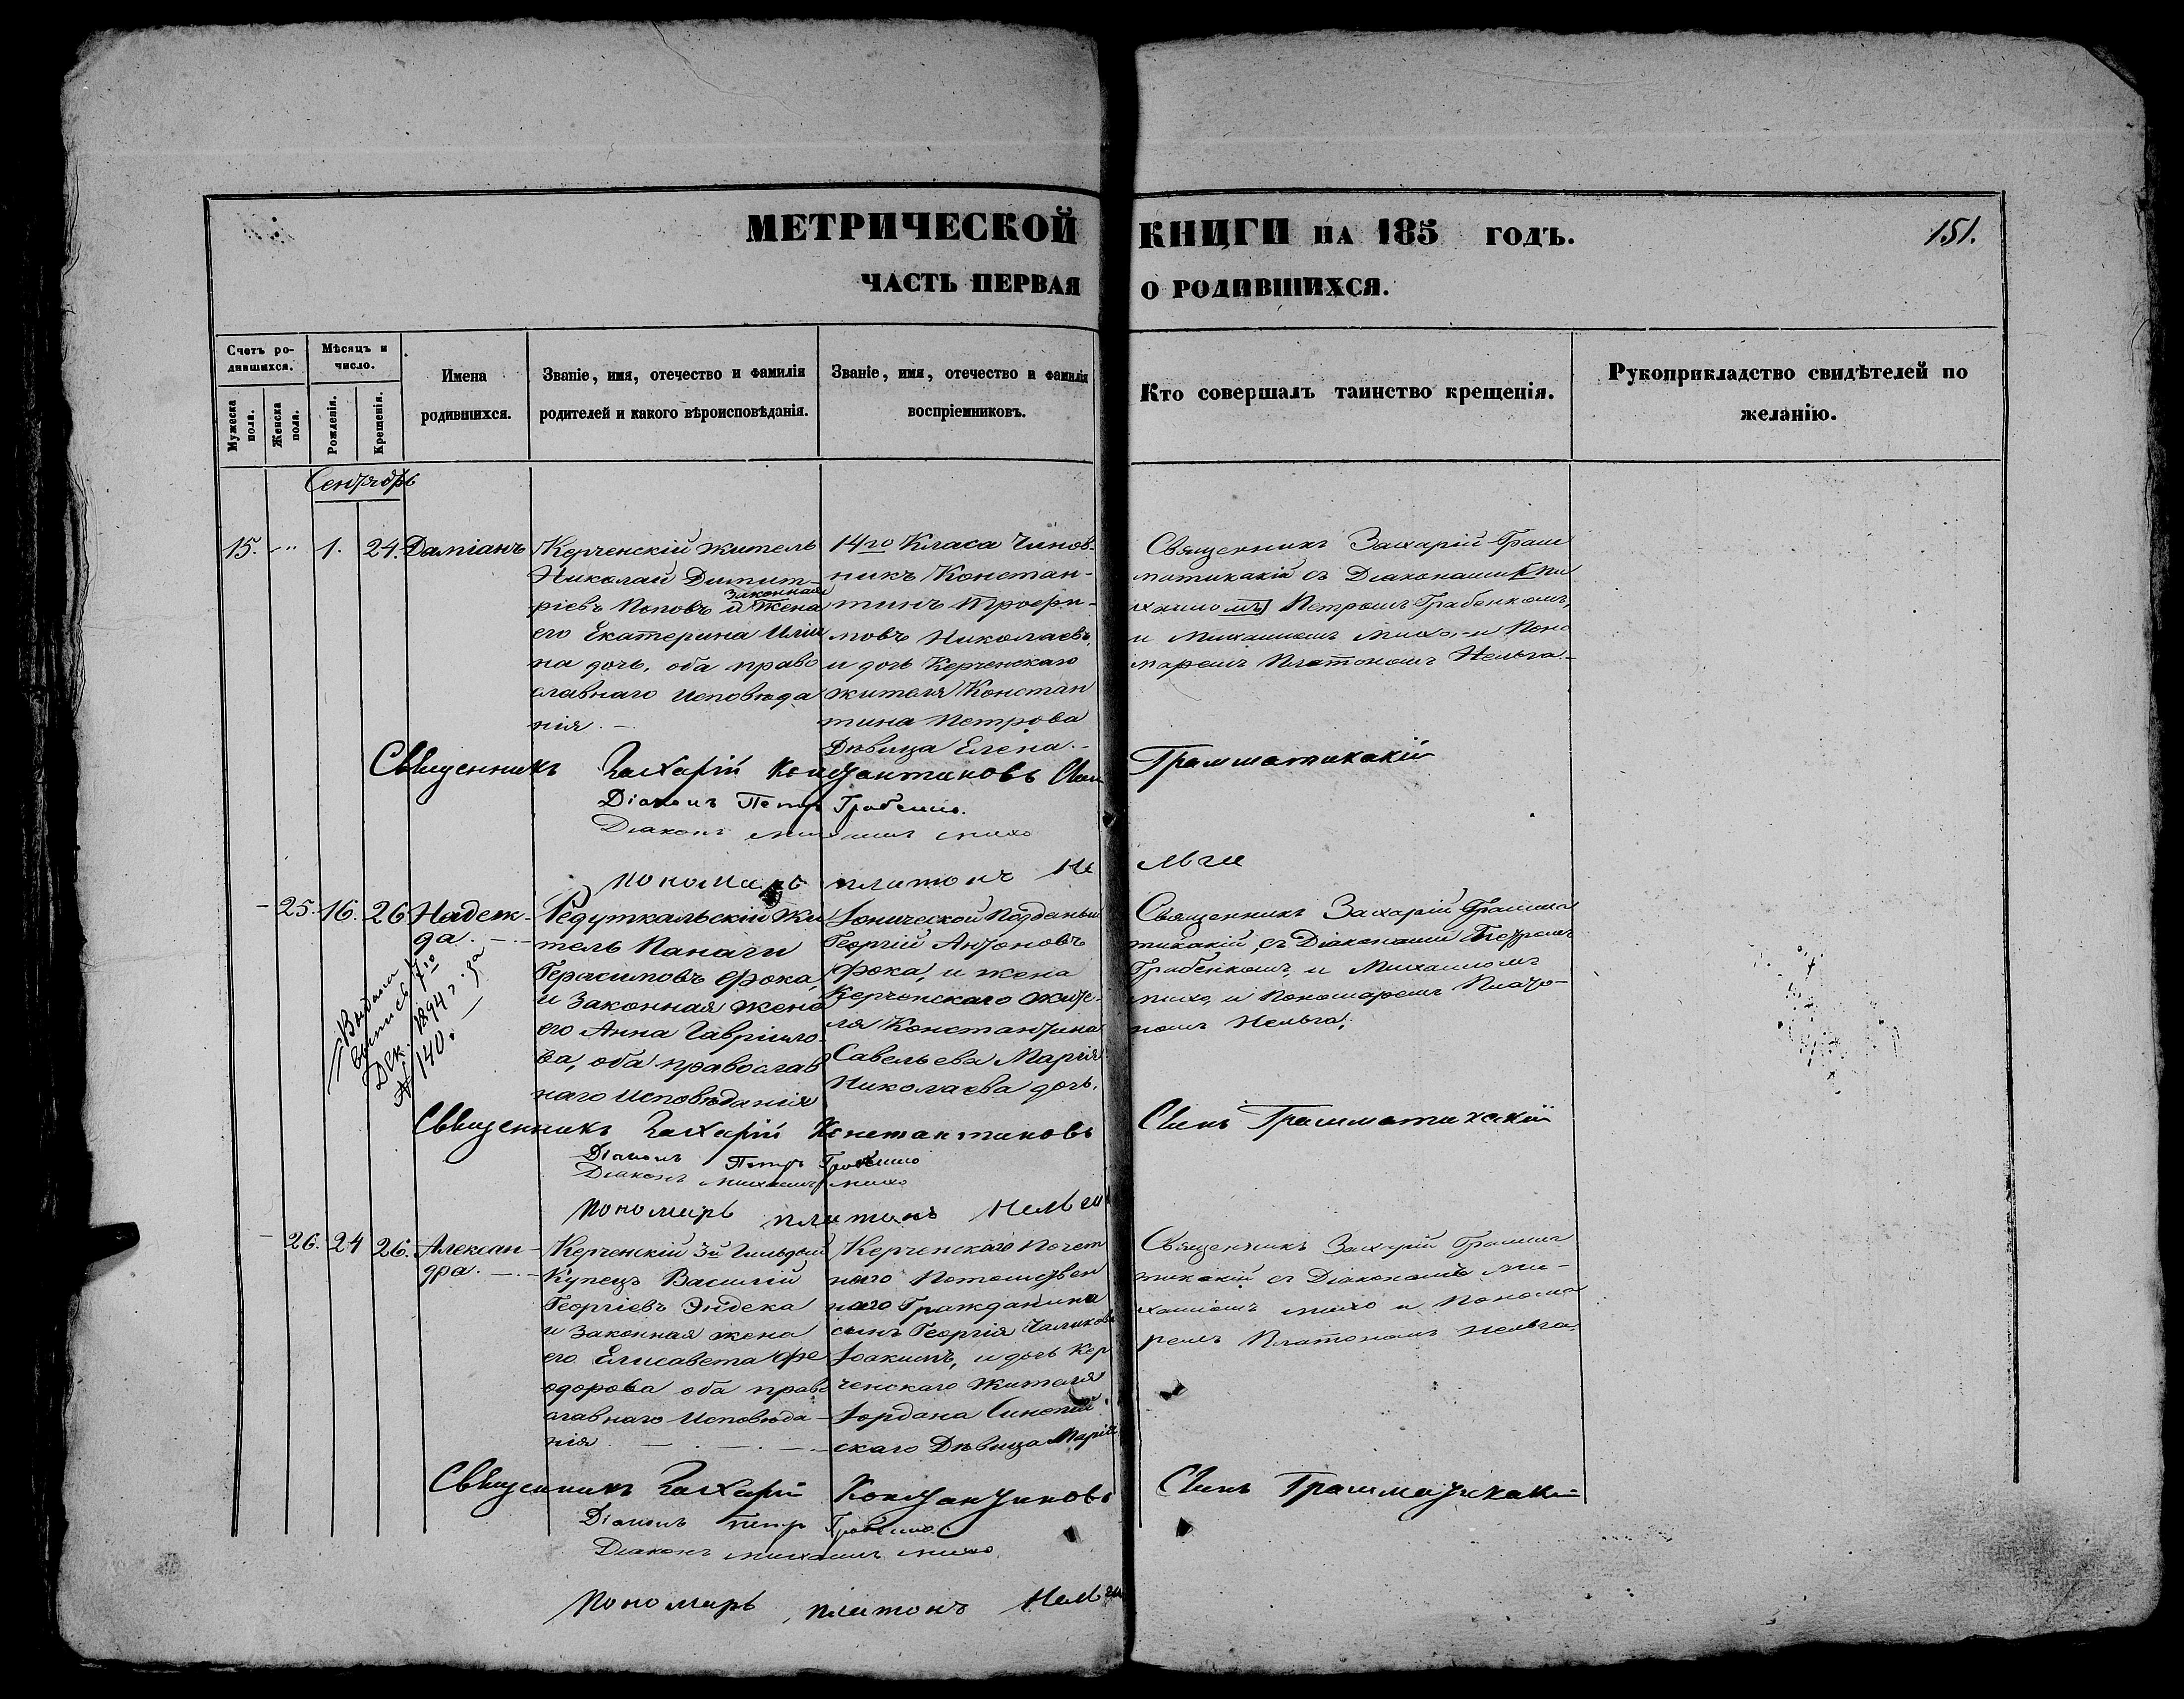 МЕТРИЧЕСКОЙ КНИЦГИ НА 185 ГОДЪ.
151.
ЧАСТЬ ПЕРВАЯ О РОДИВШИХСЯ.
Счетъ ро-
дившихся.
Мужеска
пола.
Женска
пола.
Мѣсяцъ и
число.
Рожденія.
Крещенія.
Имена
родившихся.
Званіе, имя, отечество и фамилія
родителей и какого вѣроисповѣданія.
Званіе, имя, отечество и фамилія
воспріемниковъ.
Кто совершалъ таинство крещенія.
Рукоприкладство свидѣтелей по
желанію.
Сентябрь
15. 1. 24. Даміанъ
Керченскій житель
Николай Димит-
ріевъ Поповъ и законная жена
его Екатерина Иліи
на дочь, оба право
славнаго исповѣда
нія. —
14го Класа Чинов-
никъ Констан-
тинъ Трофи-
мовъ Николаевъ,
и дочь Керченскаго
жителя Констан
тина Петрова
Дѣвица Елена. -
Священникъ Захарій Грам
матикакій съ Діаконами Ми
хаиломъ Петромъ Грабенкомъ,
и Михаиломъ Михо, и Поно
маремъ Платономъ Нельга. -
Священникъ Захарій Константиновъ Сынъ Грамматикакій
Діаконъ Петръ Грабенко.
Діаконъ Михаилъ Михо
Пономарь Платонъ Нельга
- 25. 16. 26 Надеж-
да. —
Редуткальскій жи
тель Панаги
Герасимовъ Фока,
и законная жена
его Анна Гавріило
ва, оба православ
наго исповѣданія
Іонической Подданый
Георгій Антоновъ
Фока, и жена
Керченскаго жите-
ля Константина
Савельева Марія
Николаева дочь.
Священникъ Захарій Грамма
тикакій, съ Діаконами Петромъ
Грабенкомъ, и Михаиломъ
Михо, и Пономаремъ Плато-
номъ Нельга.
Выдана
выпись 7го
Дек. 1894 г. за
№ 140. —
Священникъ Захарій Константиновъ Сынъ Грамматикакій
Діаконъ Петръ Грабенко
Діаконъ Михаилъ Михо
Пономарь Платонъ Нельга
- 26. 24 26. Алексан-
дра. —
Керченскій 3й Гильдіи
Купецъ Василій
Георгіевъ Эндека
и законная жена
его Елисавета Фе
одорова оба право
славнаго исповѣда-
нія. — . — . —
Керченскаго Почет
наго Потомствен
наго Гражданина
сынъ Георгія Чаликова
Іоакимъ, и дочь Кер
ченскаго жителя
Іордана Синопій
скаго Дѣвица Марія
Священникъ Захарій Грамма
тикакій съ Діаконамъ Ми-
хаиломъ Михо и Понома
ремъ Платономъ Нельга.
Священникъ Захарій Константиновъ Сынъ Грамматикакій
Діаконъ Петръ Грабенко.
Діаконъ Михаилъ Михо
Пономарь Платонъ Нельга